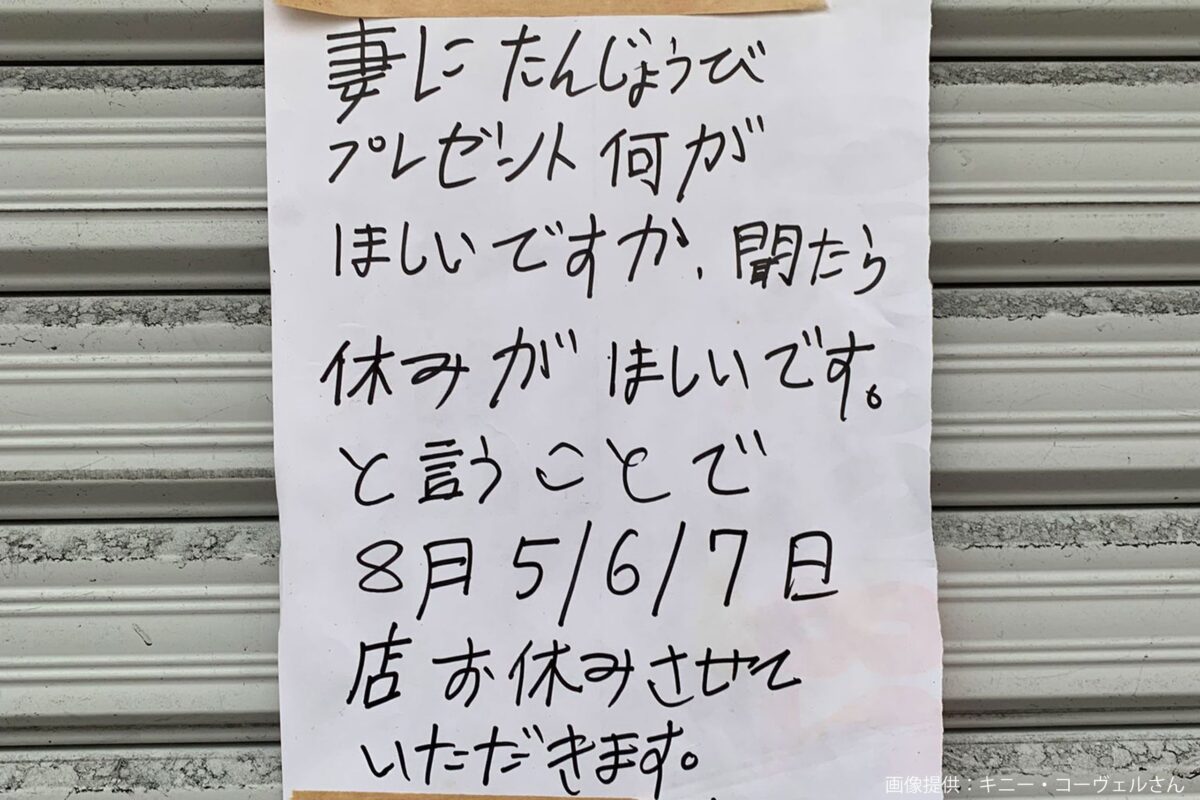 妻に たんじょうび
プレゼント 何が
ほしいですか、聞たら
休みが ほしいです。
と言うことで
8月 5/6/7 日
店お休みさせて
いただきます。
画像提供：キニー・コーヴェルさん